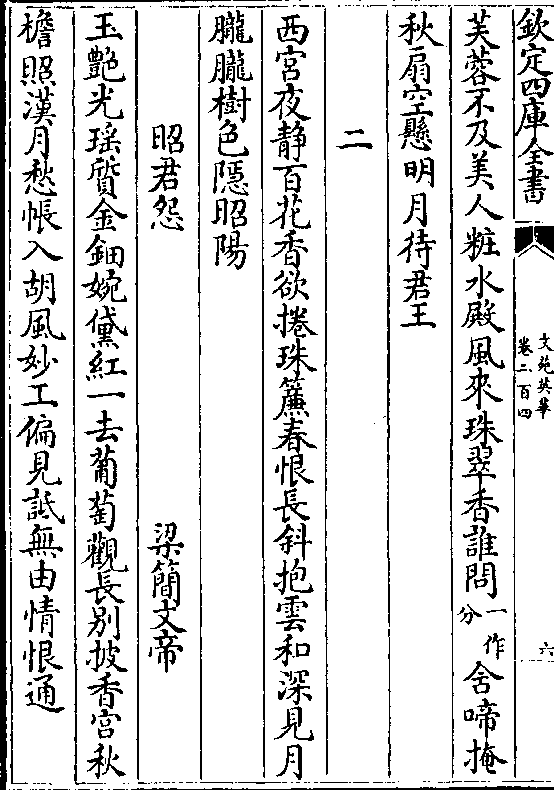 欽定四庫全書
文苑英華
卷二百四
六
芙蓉不及美人粧水殿風來珠翠香誰問一作分舍啼掩
秋扇空懸明月待君王
二
西宮夜静百花香欲捲珠簾春恨長斜抱雲和深見月
朧朧樹色隱昭陽
昭君怨 梁簡文帝
玉艷光瑶質金鈿婉黛紅一去葡萄觀長別披香宮秋
檐照漢月愁帳入胡風妙工偏見詆無由情恨通